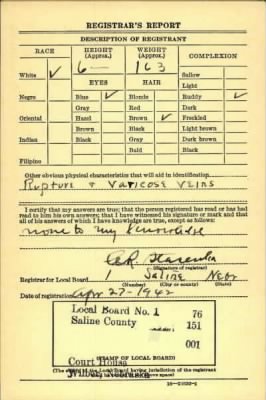 REGISTRAR'S REPORT
DESCRIPTION OF REGISTRANT
RACE HEIGHT (Approx.) WEIGHT (Approx.) COMPLEXION
White ✓ 6 — 163 Sallow
Light
EYES HAIR
Negro Blue ✓ Blonde Ruddy ✓
Gray Red Dark
Oriental Hazel Brown ✓ Freckled
Brown Black Light brown
Indian Black Gray Dark brown
Bald Black
Filipino
Other obvious physical characteristics that will aid in identification
Rupture & Varicose Veins
I certify that my answers are true; that the person registered has read or has had
read to him his own answers; that I have witnessed his signature or mark and that
all of his answers of which I have knowledge are true, except as follows:
none to my knowledge
(Signature of registrar)
Registrar for Local Board 1 Saline Nebr
(Number) (City or county) (State)
Date of registration Apr 27-1942
Local Board No. 1 76
Saline County 151
001
Court House
Wilber, Nebraska
(STAMP OF LOCAL BOARD)